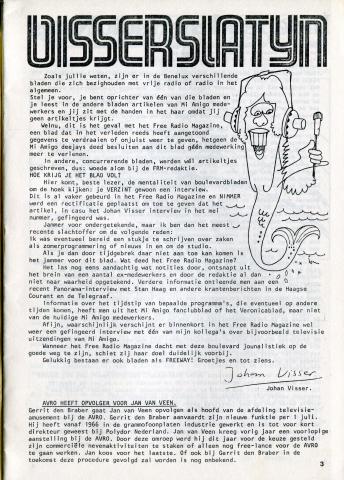 VISSERSLATYN
Zoals jullie weten, zijn er in de Benelux verschillende
bladen die zich bezighouden met vrije radio of radio in het
algemeen.
Stel je voor, je bent oprichter van één van die bladen en
je leest in de andere bladen artikelen van Mi Amigo mede-
werkers en jij zit met de handen in het haar omdat jij
geen artikeltjes krijgt.
Welnu, dit is het geval met het Free Radio Magazine,
een blad dat in het verleden reeds heeft aangetoond
gegevens te verdraaien of onjuist weer te geven, hetgeen de
Mi Amigo deejays deed besluiten aan dit blad géén medewerking
meer te verlenen.
In andere, concurrerende bladen, werden wél artikeltjes
geschreven, dus: woede alom bij de FRM-redaktie.
HOE KRIJG JE HET BLAD VOL?
Hier komt, beste lezer, de mentaliteit van boulevardbladen
om de hoek kijken: je VERZINT gewoon een interview.
Dit is al vaker gebeurd in het Free Radio Magazine en NIMMER
werd een rectificatie geplaatst om toe te geven dat het
artikel, in casu het Johan Visser interview in het mei
nummer, gefingeerd was.
Jammer voor ondergetekende, maar ik ben dan het meest
recente slachtoffer om de volgende reden:
Ik was eventueel bereid een stukje te schrijven over zaken
als zomerprogrammering of nieuws in en om de studio.
Als je dan door tijdgebrek daar niet aan toe kan komen is
het jammer voor dit blad. Wat deed het Free Radio Magazine?
Het las nog eens aandachtig wat notities door, ontsnapt uit
het brein van een aantal ex-medewerkers en door de redaktie al dan
niet naar waarheid opgetekend. Verdere informatie ontleende men aan een
recent Panorama-interview met Stan Haag en andere krantenberichten in de Haagse
Courant en De Telegraaf.
Informatie over het tijdstip van bepaalde programma's, die eventueel op andere
tijden komen, heeft men uit het Mi Amigo fanclubblad of het Veronicablad, maar niet
van de huidige Mi Amigo medewerkers.
Afijn, waarschijnlijk verschijnt er binnenkort in het Free Radio Magazine wel
weer een gefingeerd interview met één van mijn kollega's over bijvoorbeeld televisie
uitzendingen van Mi Amigo.
Wanneer het Free Radio Magazine dacht met deze boulevard jounalistiek op de
goede weg te zijn, schiet zij haar doel duidelijk voorbij.
Gelukkig bestaan er ook bladen als FREEWAY! Groetjes en tot ziens.
Johan Visser
Johan Visser.
AVRO HEEFT OPVOLGER VOOR JAN VAN VEEN.
Gerrit den Braber gaat Jan van Veen opvolgen als hoofd van de afdeling televisie-
amusement bij de AVRO. Gerrit den Braber aanvaardt zijn nieuwe functie per 1 juli.
Hij heeft vanaf 1966 in de grammofoonplaten industrie gewerkt en is tot voor kort
direkteur geweest bij Polydor Nederland. Jan van Veen kreeg vorig jaar een voorlopige
aanstelling bij de AVRO. Door deze omroep werd hij dit jaar voor de keuze gesteld
zijn commerciële nevenaktiviteiten te staken of alleen nog free-lance voor de AVRO
te gaan werken. Jan koos voor het laatste. Of ook bij Gerrit den Braber in de
toekomst deze procedure gevolgd zal worden is nog onbekend.
3